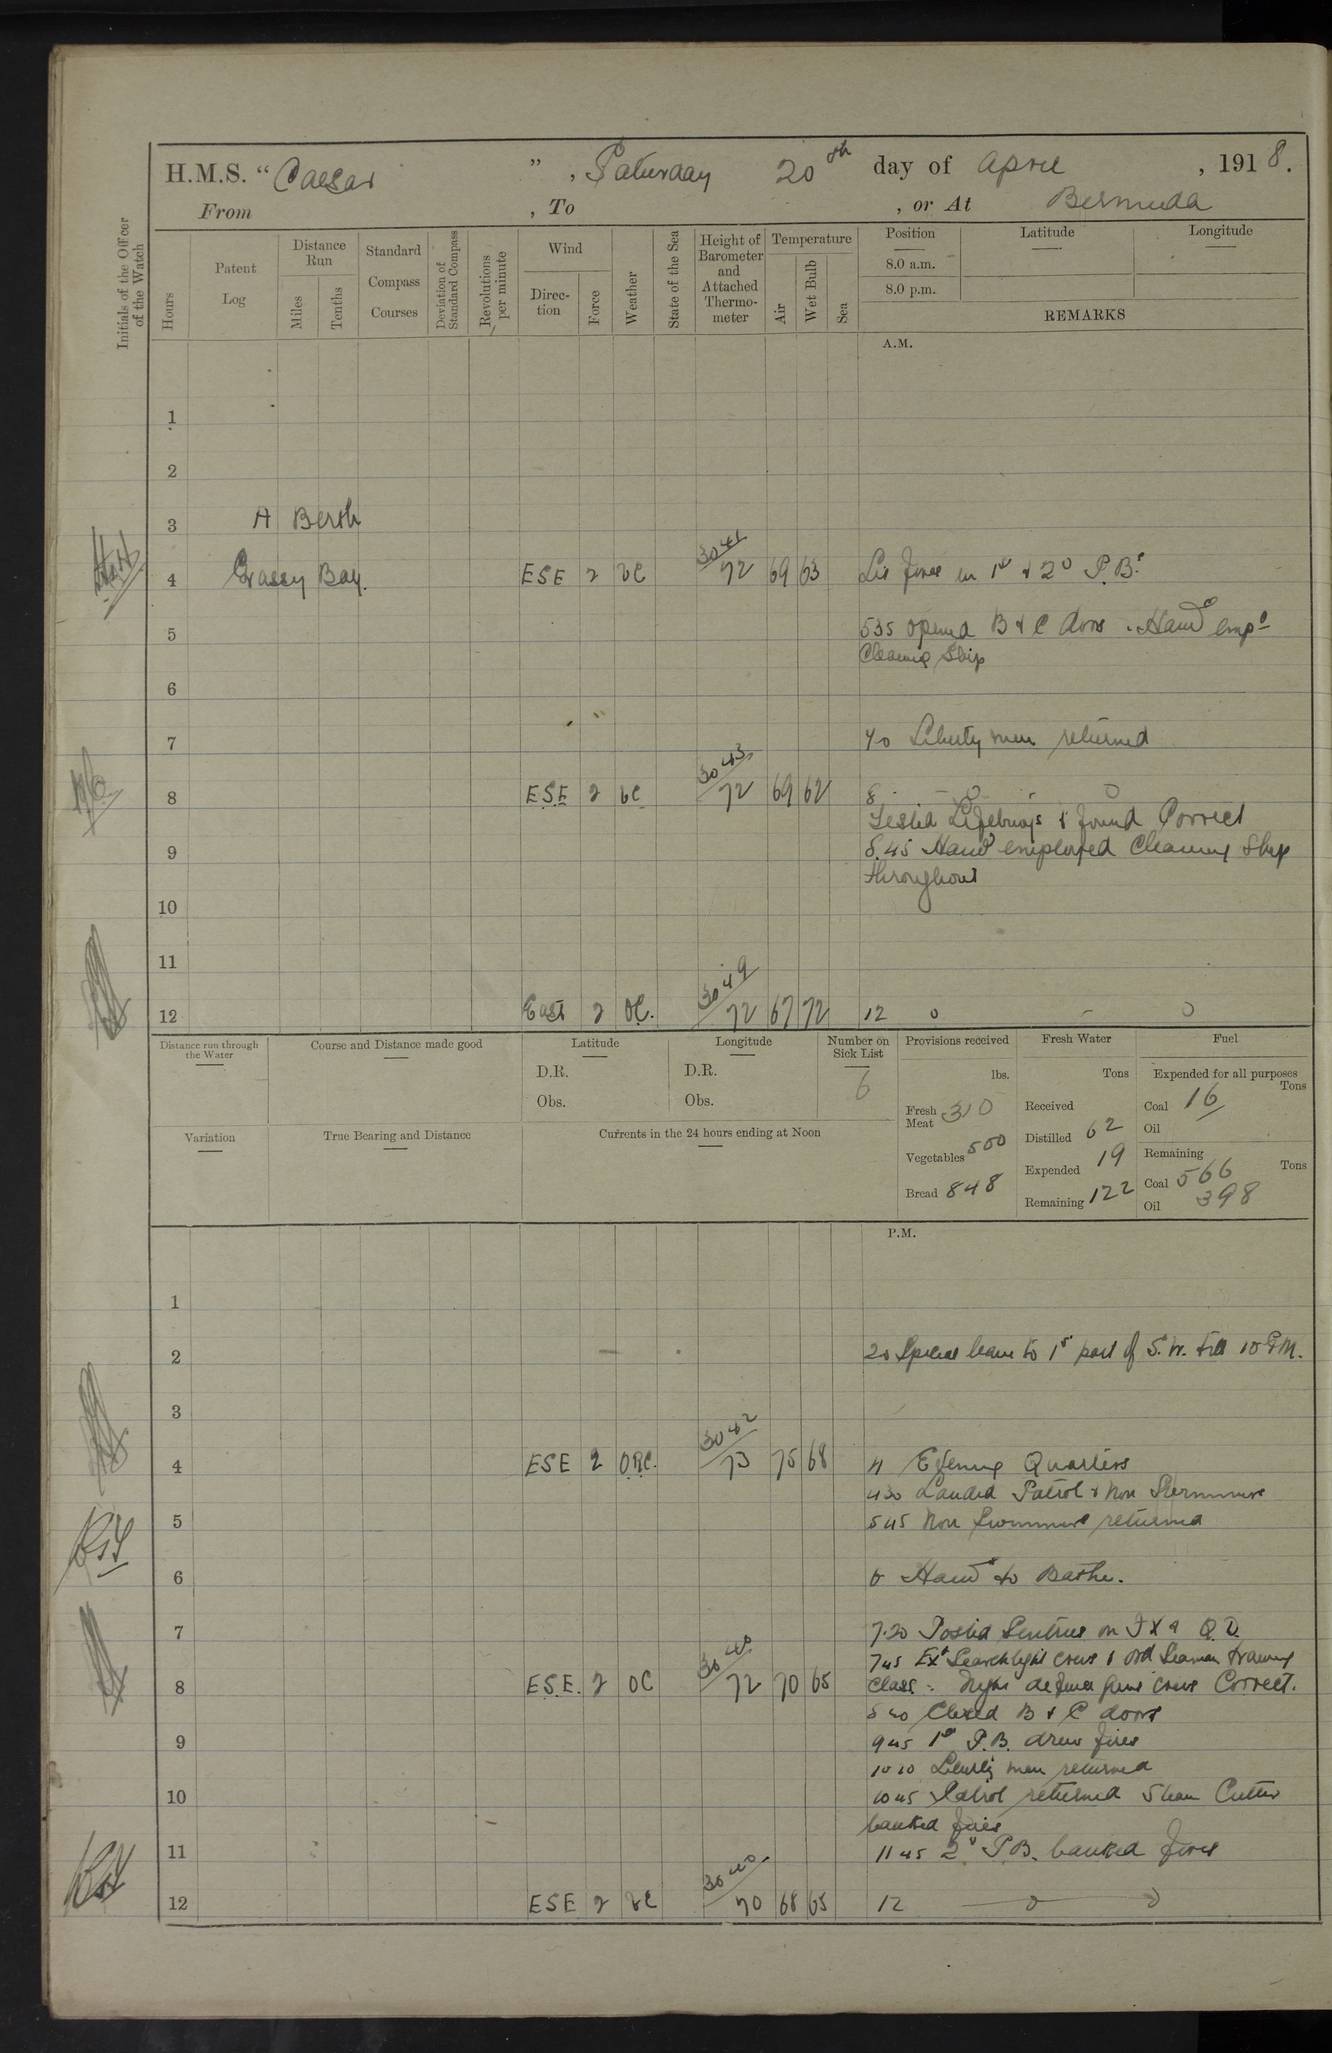 H.M.S. "Caesar", Saturday 20th day of April, 1918.
From , To , or At Bermuda
Initials of the Officer of the Watch
Hours
Patent Log
Distance Run
Miles
Tenths
Standard Compass Courses
Deviation of Standard Compass
Revolutions per minute
Wind
Direction
Force
Weather
State of the Sea
Height of Barometer and Attached Thermometer
Temperature
Air
Wet Bulb
Sea
Position
8.0 a.m.
8.0 p.m.
Latitude
Longitude
REMARKS
A.M.
1
2
3 A Berth
4 Grassy Bay. ESE 2 bc 3041/72 69 63 Lit fires in 1st & 2d P.Bs.
5 535 Opened B & C doors. Hands empd
Cleaning Ship
6
7 70 Liberty men returned
8 E.S.E 2 bc 3043/72 69 62 8
Tested Lifebuoys & found Correct
9 8.45 Hands employed Cleaning Ship
throughout
10
11
12 East 2 3049/72 67 72 12 0 - 0
Distance run through the Water
Course and Distance made good
Latitude
D.R.
Obs.
Longitude
D.R.
Obs.
Number on Sick List
6
Provisions received
lbs.
Fresh Meat 310
Vegetables 500
Bread 848
Fresh Water
Tons
Received
Distilled 62
Expended 19
Remaining 122
Fuel
Expended for all purposes
Tons
Coal 16
Oil
Remaining
Tons
Coal 566
Oil 398
Variation
True Bearing and Distance
Currents in the 24 hours ending at Noon
P.M.
1
2 20 Special leave to 1st part of S.W. till 10 P.M.
3
4 ESE 2 ORC. 3042/73 75 68 4 Evening Quarters
430 Landed Patrol & Non Swimmers
5 545 Non Swimmers returned
6 6 Hands to Bathe.
7 7.20 Posted Sentries on FX & Q.D.
745 Exd Searchlight crews & Ord Seaman training
8 E.S.E. 2 OC 3040/72 70 65 Class: Night defence guns crews Correct.
840 Closed B & C doors
9 945 1st P.B. drew fires
1010 Liberty men returned
10 1045 Patrol returned Steam Cutter
banked fires
11 1145 2d P.B. banked fires
12 ESE 2 bc 3040/70 68 65 12 0 0